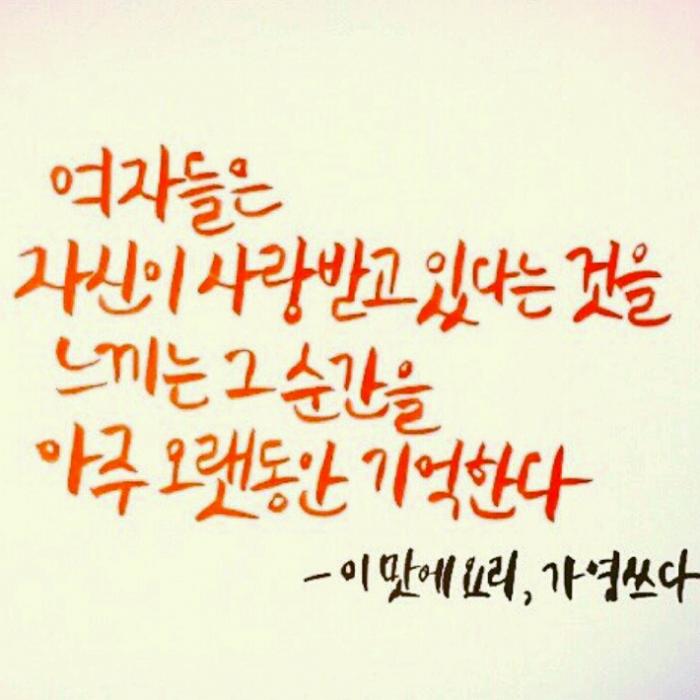 여자들은
자신이 사랑받고 있다는 것을
느끼는 그 순간을
아주 오랫동안 기억한다
- 이 맛에 요리, 가영쓰다